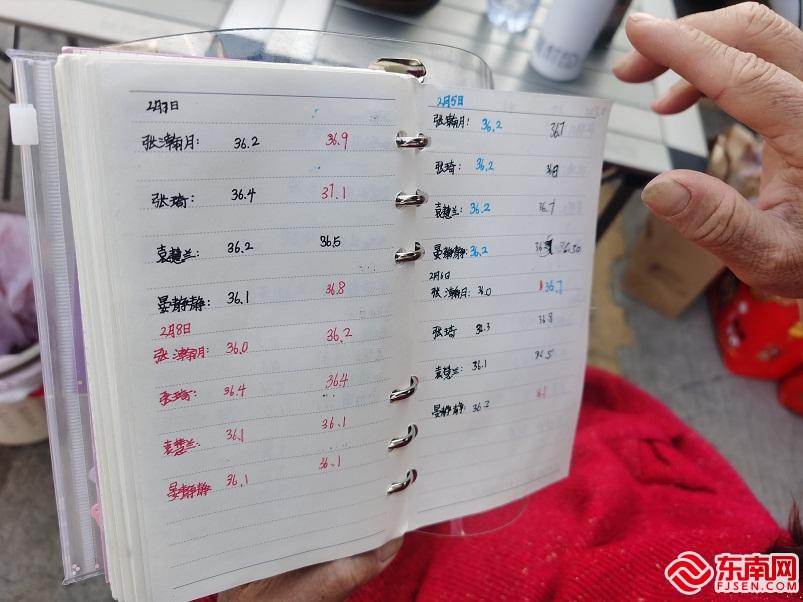 2月7日
张瀚月: 36.2 36.9
张琦: 36.4 37.1
袁慧兰: 36.2 36.5
晏静静: 36.1 36.8
2月8日
张瀚月: 36.0 36.2
张琦: 36.4 36.4
袁慧兰: 36.1 36.1
晏静静: 36.1 36.1
2月5日
张瀚月: 36.2 36.7
张琦: 36.2 36.8
袁慧兰: 36.2 36.7
晏静静: 36.2 36.50
2月6日
张瀚月: 36.0 36.7
张琦: 36.3 36.8
袁慧兰: 36.1 36.5
晏静静: 36.2
东南网
FJSEN.COM